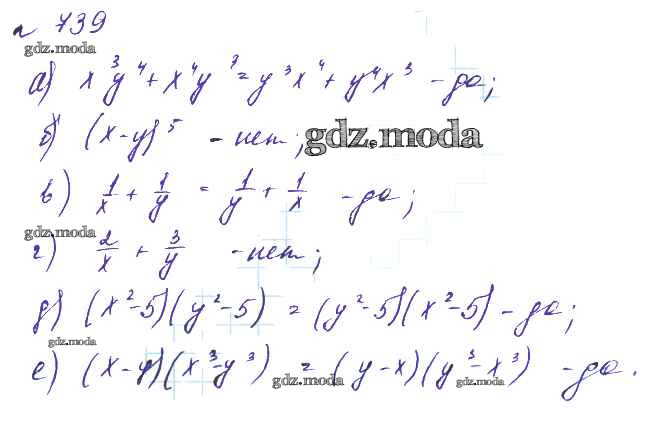 № 739
gdz.moda
а) x³y⁴ + x⁴y³ = y³x⁴ + y⁴x³ - да;
б) (x-y)⁵ - нет; gdz.moda
в) 1/x + 1/y = 1/y + 1/x - да;
gdz.moda
г) 2/x + 3/y - нет;
д) (x²-5)(y²-5) = (y²-5)(x²-5) - да;
gdz.moda
е) (x-y)(x³-y³) = (y-x)(y³-x³) - да.
gdz.moda gdz.moda